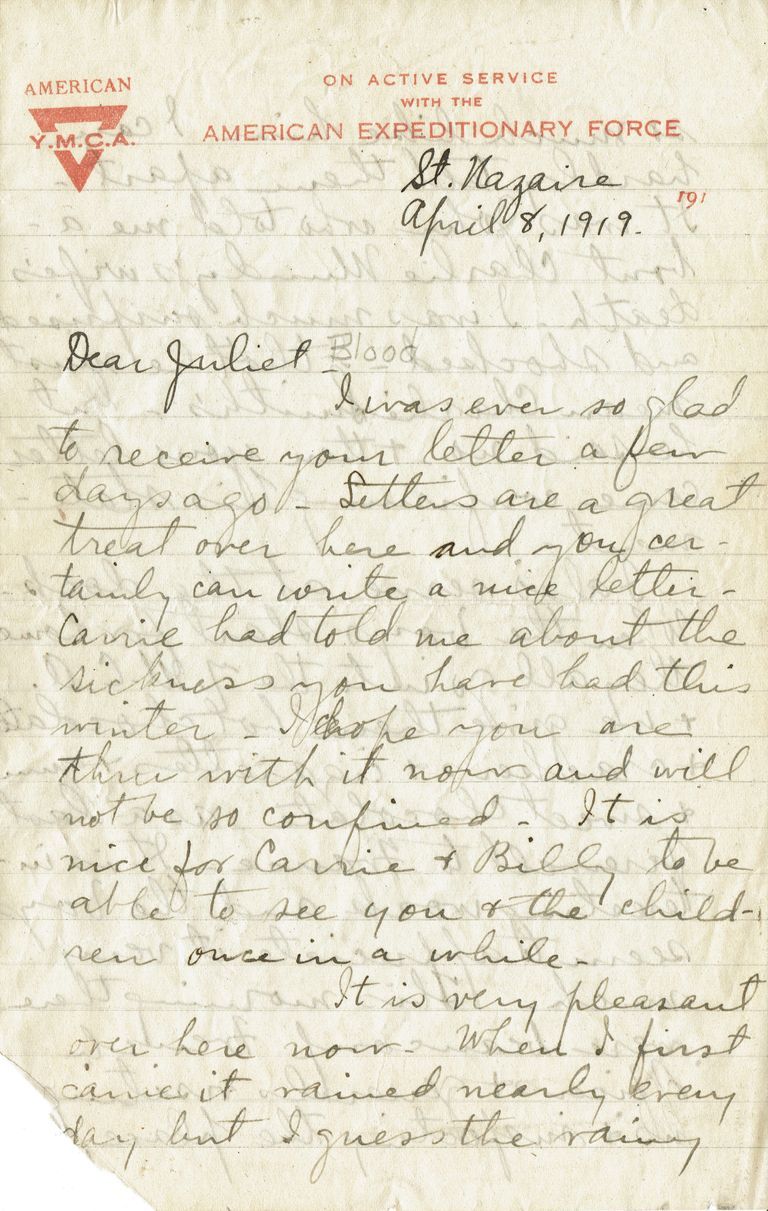 AMERICAN
Y.M.C.A.
ON ACTIVE SERVICE
WITH THE
AMERICAN EXPEDITIONARY FORCE
191
St. Nazaire
April 8, 1919.
Dear Juliet - Blood
I was ever so glad
to receive your letter a few
days ago - Letters are a great
treat over here and you cer-
tainly can write a nice letter -
Carrie had told me about the
sickness you have had this
winter - I hope you are
thru with it now and will
not be so confined - It is
nice for Carrie + Billy to be
able to see you + the child-
ren once in a while -
It is very pleasant
over here now - When I first
came it rained nearly every
day but I guess the rainy